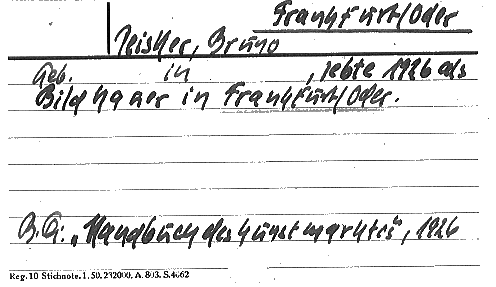 Frankfurt/Oder
Bruno
Geb. in , lebte 1926 als
Bildhauer in Frankfurt/Oder.
B.G: „Handbuch des Kunstmarktes", 1926
Reg. 10 Stichnote. 1. 50. 232000. A. 803. S. 4662